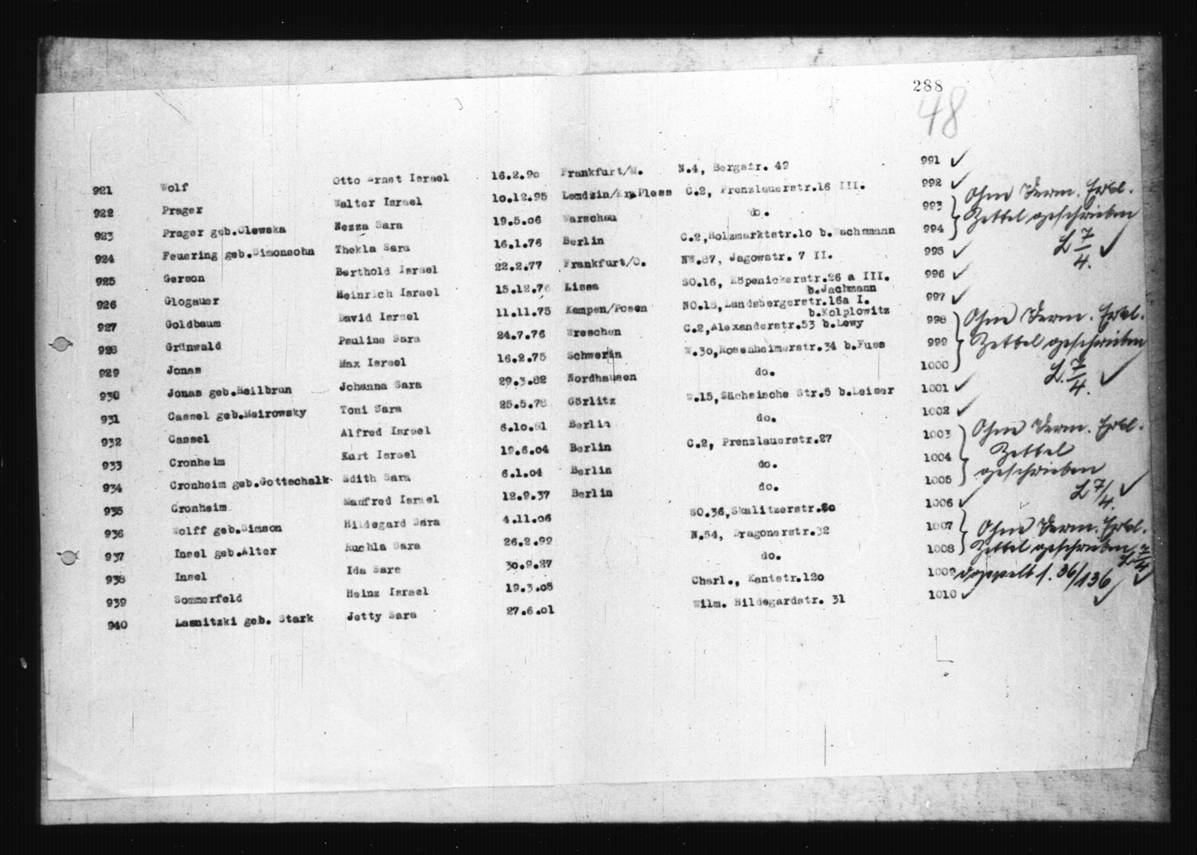 288
48
921 Wolf Otto Ernst Israel 16.2.90 Frankfurt/M. N.4, Bergstr. 42 991 ✓
922 Prager Walter Israel 10.12.95 Lendzin/Kr.Pless C.2, Prenzlauerstr.16 III. 992 ✓
923 Prager geb.Olewska Nezza Sara 19.5.06 Warschau do. 993 Ohne Verm. Erkl.
924 Feuering geb.Simonsohn Thekla Sara 16.1.76 Berlin C.2,Holzmarktstr.10 b. 994 Zettel geschrieben
925 Gerson Berthold Israel 22.2.77 Frankfurt/O. NW.87, Jagowstr. 7 II. 995 ✓ L 7/4. ✓
926 Glogauer Heinrich Israel 15.12.76 Lissa SO.16, Köpenickerstr.26 a III. 996 ✓
b.Jachmann
927 Goldbaum David Israel 11.11.75 Kempen/Posen NO.18,Landsbergerstr.16a I. 997 ✓
b.Kolplowitz
928 Grünwald Pauline Sara 24.7.76 Wreschen C.2,Alexanderstr.53 b.Lewy 998 Ohne Verm. Erkl.
929 Jonas Max Israel 16.2.75 Schwerin W.30,Rosenheimerstr.34 b.Fuss 999 Zettel geschrieben
930 Jonas geb.Heilbrun Johanna Sara 29.3.82 Nordhausen do. 1000 L. 7/4. ✓
931 Cassel geb.Meirowsky Toni Sara 25.5.78 Görlitz W.15,Sächsische Str.5 b.Leiser 1001 ✓
932 Cassel Alfred Israel 6.10. Berlin do. 1002 ✓
933 Cronheim Kurt Israel 19.6.04 Berlin C.2, Prenzlauerstr.27 1003 Ohne Verm. Erkl.
934 Cronheim geb.Gottschalk Edith Sara 6.1.04 Berlin do. 1004 Zettel
935 Cronheim Manfred Israel 12.9.37 Berlin do. 1005 geschrieben
936 Wolff geb.Simson Hildegard Sara 4.11.06 SO.36,Skalitzerstr.20 1006 ✓ L 7/4. ✓
937 Insel geb.Alter Ruchla Sara 26.2.99 N.54, Dragonerstr.32 1007 Ohne Verm. Erkl.
938 Insel Ida Sara 30.9.27 do. 1008 Zettel geschrieben L 7/4
939 Sommerfeld Heinz Israel 19.3.05 Charl., Kantstr.120 1009 doppelt s. 36/136 ✓
940 Lasnitzki geb. Stark Jetty Sara 27.6.01 Wilm. Hildegardstr. 31 1010 ✓ ✓